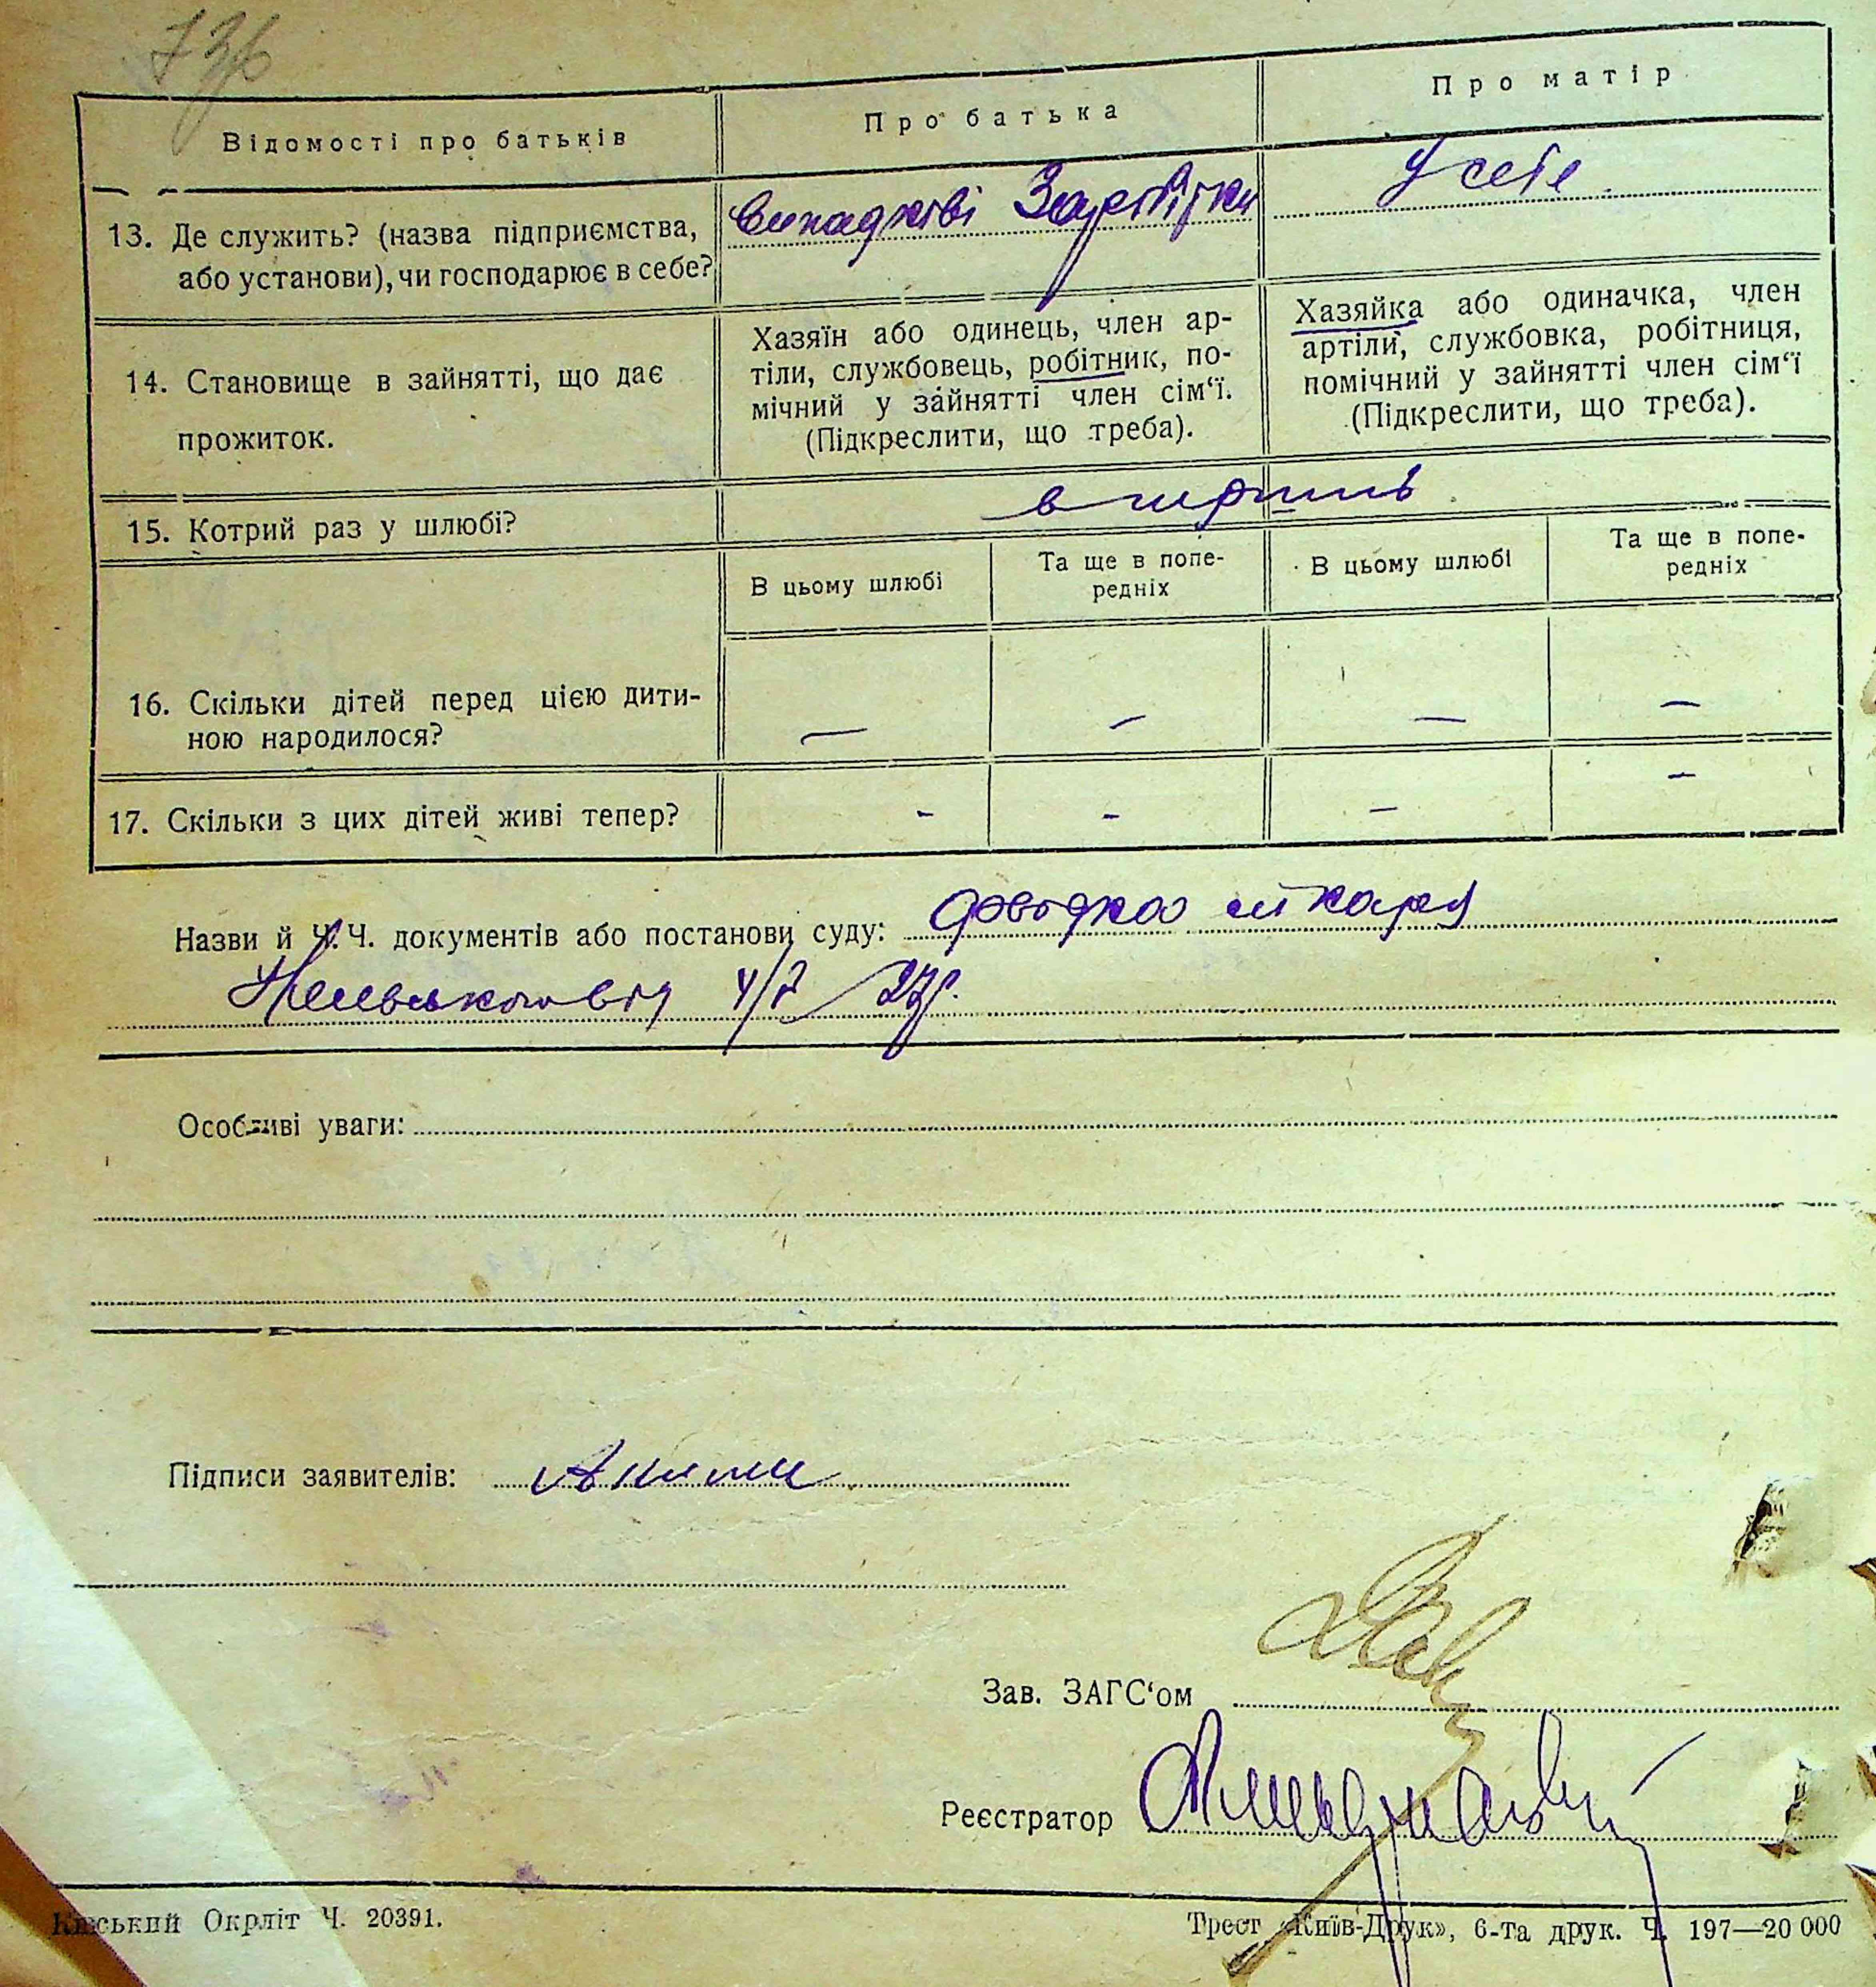 73б
Відомості про батьків
Про батька
Про матір
13. Де служить? (назва підприємства,
або установи), чи господарює в себе?
випадкові Заробітки
У себе
14. Становище в зайнятті, що дає
прожиток.
Хазяїн або одинець, член ар-
тіли, службовець, робітник, по-
мічний у зайнятті член сім‘ї.
(Підкреслити, що треба).
Хазяйка або одиначка, член
артіли, службовка, робітниця,
помічний у зайнятті член сім‘ї
(Підкреслити, що треба).
15. Котрий раз у шлюбі?
В цьому шлюбі
Та ще в попе-
редніх
В цьому шлюбі
Та ще в попе-
редніх
16. Скільки дітей перед цією дити-
ною народилося?
— — — —
17. Скільки з цих дітей живі тепер?
- - — —
Назви й Ч.Ч. документів або постанови суду: довідка лікаря
від 4/7 27р.
Особливі уваги:
Підписи заявителів:
Зав. ЗАГС‘ом
Реєстратор
Київський Окрліт Ч. 20391.
Трест «Київ-Друк», 6-та друк. Ч. 197—20 000